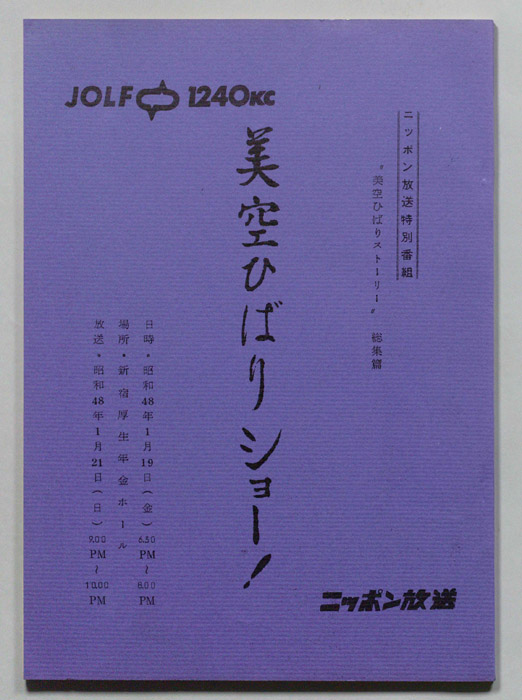 JOLF 1240KC
ニッポン放送特別番組
〝美空ひばりストーリー〟 総集篇
美空ひばりショー!
日時・昭和48年1月19日(金) 6.30 PM〜8.00 PM
場所・新宿厚生年金ホール
放送・昭和48年1月21日(日) 9.00 PM〜10.00 PM
ニッポン放送